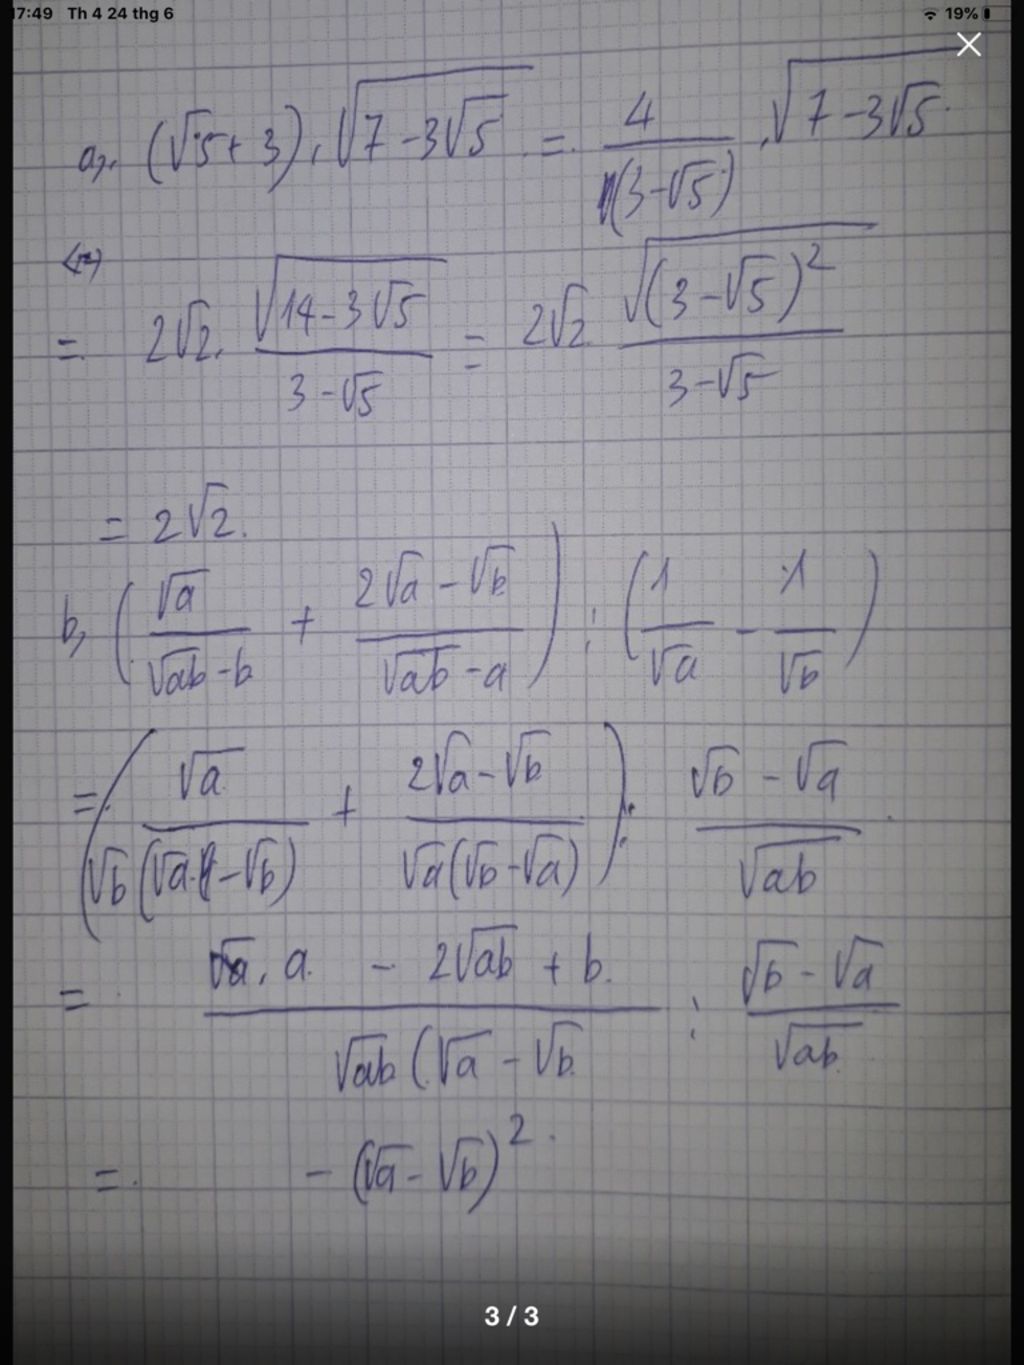 17:49 Th 4 24 thg 6 19%
a,. (√5 + 3) . √(7 - 3√5) = 4/(3 - √5) . √(7 - 3√5)
= 2√2 . √(14 - 3√5)/(3 - √5) = 2√2 √((3 - √5)²)/(3 - √5)
= 2√2.
b, (√a/(√ab - b) + (2√a - √b)/(√ab - a)) : (1/√a - 1/√b)
= (√a/(√b(√a - √b)) + (2√a - √b)/(√a(√b - √a))) : (√b - √a)/√ab .
= (a - 2√ab + b)/(√ab(√a - √b) : (√b - √a)/√ab
= - (√a - √b)².
3 / 3